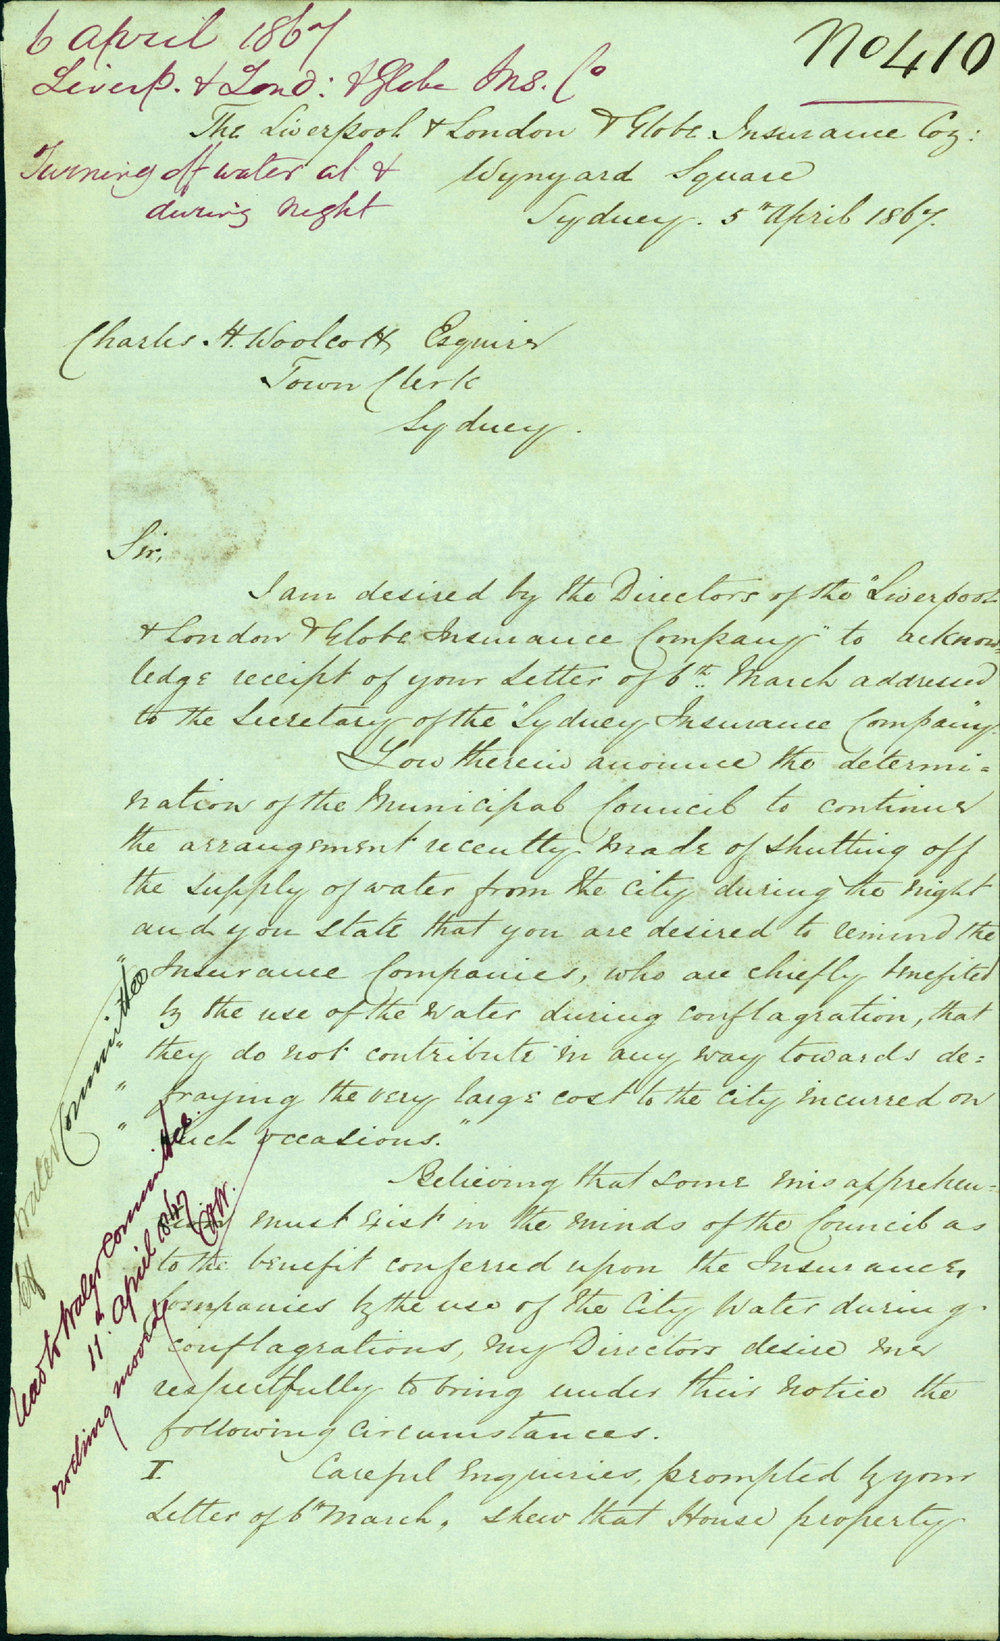 6 April 1867
No 410
Liverp. & Lond: & Globe Ins. Co
The Liverpool & London & Globe Insurance Coy:
Turning off water at &
during night
Wynyard Square
Sydney. 5th April 1867.
Charles H. Woolcott Esquire
Town Clerk
Sydney.
Sir,
I am desired by the Directors of the "Liverpool
& London & Globe Insurance Company" to acknow=
ledge receipt of your Letter of 6th March addressed
to the Secretary of the "Sydney Insurance Company".
You therein anounce the determi=
nation of the Municipal Council to continue
the arrangement recently made of shutting off
the supply of water from the City during the night
and you state that you are desired to remind the
" Insurance Companies, who are chiefly benefited
" by the use of the water during conflagration, that
" they do not contribute in any way towards de=
" fraying the very large cost to the City incurred on
" such occasions."
Believing that some misapprehen=
must exist in the minds of the Council as
to the benefit conferred upon the Insurance
Companies by the use of the City Water during
conflagrations, my Directors desire me
respectfully to bring under their notice the
following circumstances.
I. Careful Enquiries, prompted by your
Letter of 6th March, shew that House property
By Water Committee
read to Water Committee
11th April 1867
nothing moved
CHW.